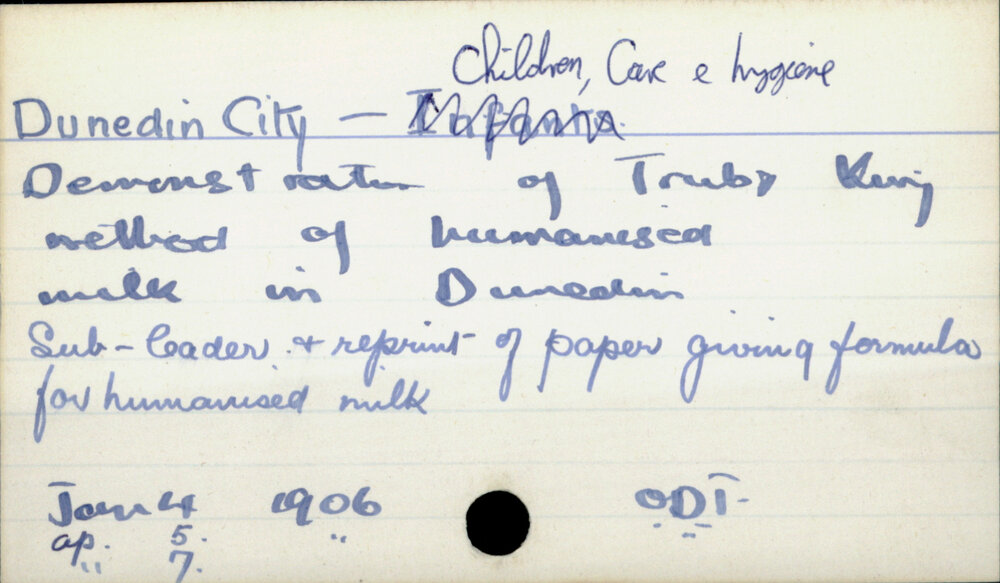 Children, Care & hygiene
Dunedin City — Infants.
Demonstration of Truby King
method of humanised
milk in Dunedin
Sub-leader. + reprint of paper giving formula
for humanised milk
Jan 4 1906 ODT.
ap. 5. "
" 7.